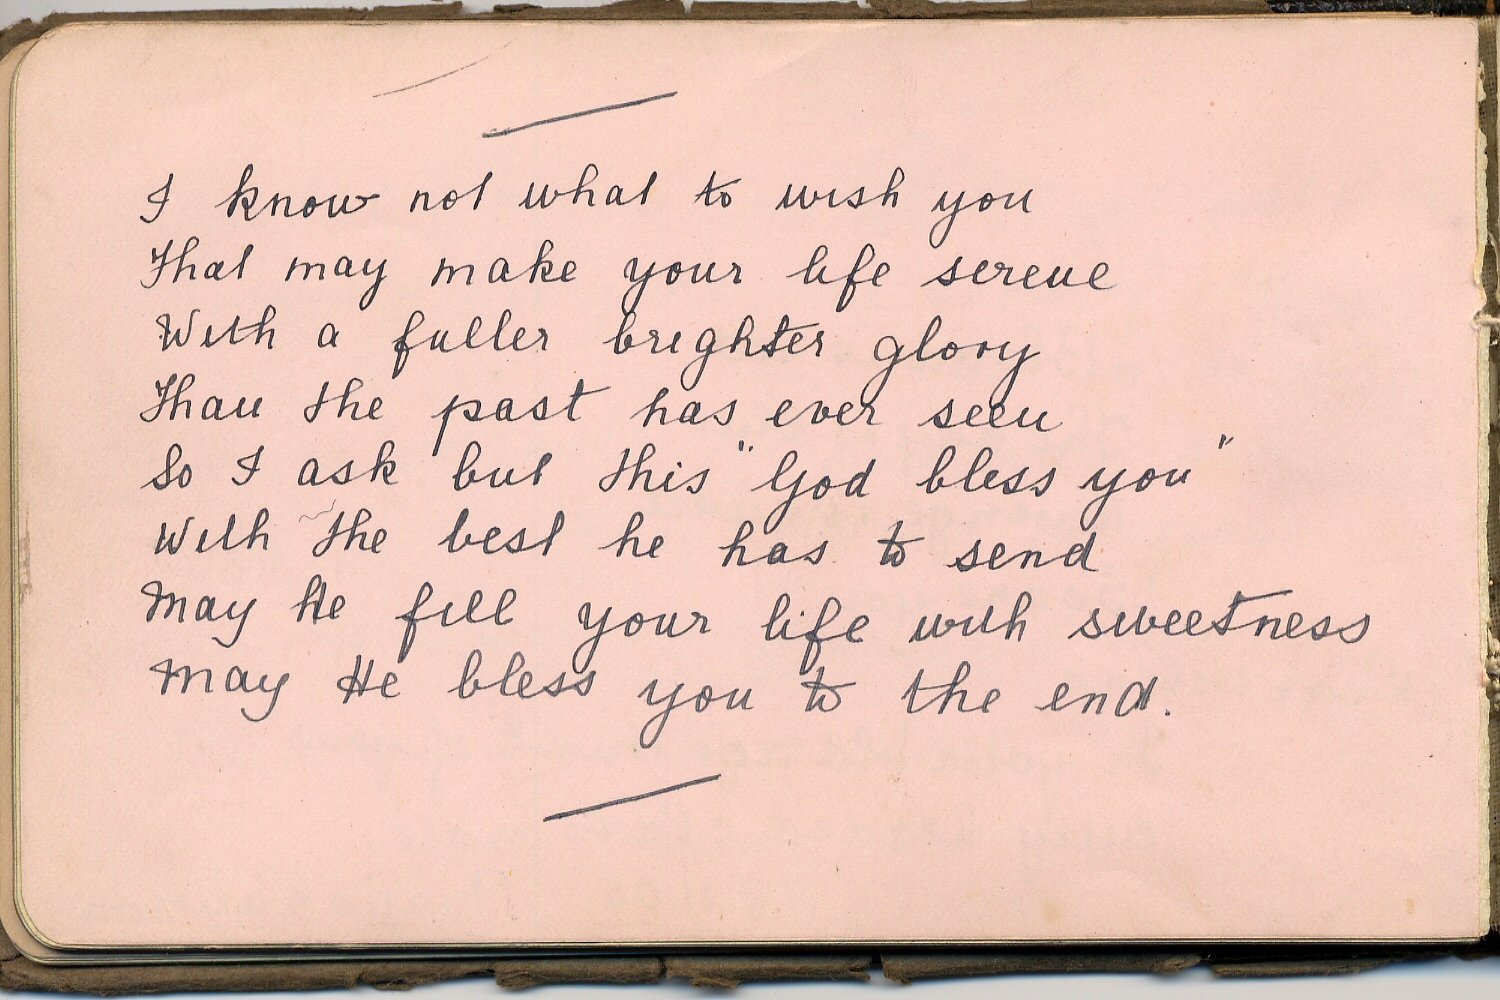 I know not what to wish you
That may make your life serene
With a fuller brighter glory
Than the past has ever seen
So I ask but this "God bless you"
With the best he has to send
May He fill your life with sweetness
May He bless you to the end.